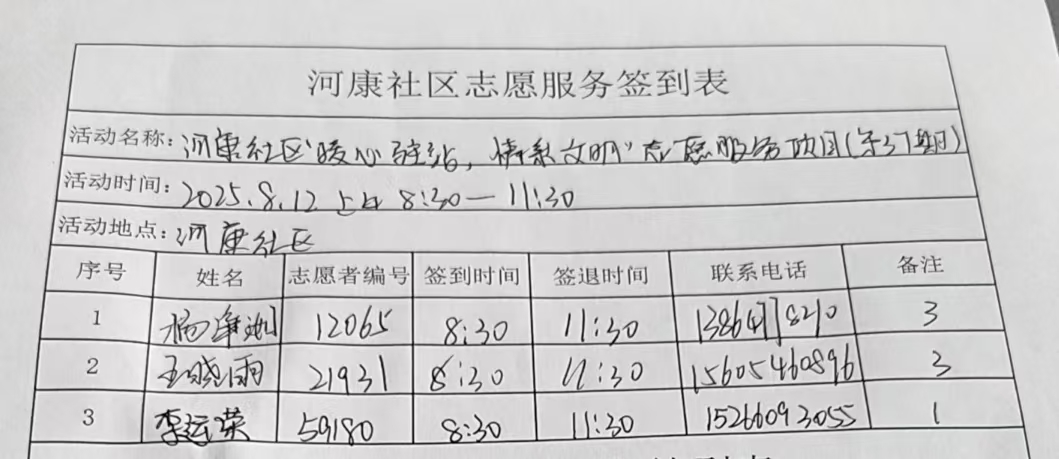 河康社区志愿服务签到表
活动名称：河康社区“暖心驿站，情系文明”志愿服务项目(第37期)
活动时间：2025.8.12 上午 8:30—11:30
活动地点：河康社区
序号 姓名 志愿者编号 签到时间 签退时间 联系电话 备注
1 杨 12065 8:30 11:30 3
2 王晓雨 21931 8:30 11:30 15605460896 3
3 李运荣 59180 8:30 11:30 15266093055 1